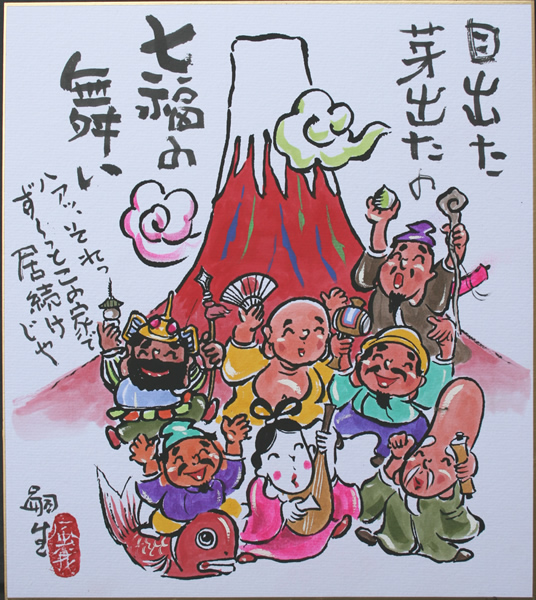 目出た
芽出たの
七福の
舞い
ハアッ、それっ
ず〜っとこの家で
居続け
じゃ
嗣生